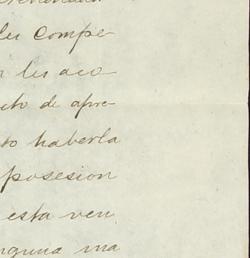 les compe-
r les aco
cto de apre-
to haberla
posesion
esta ven
inguna ma